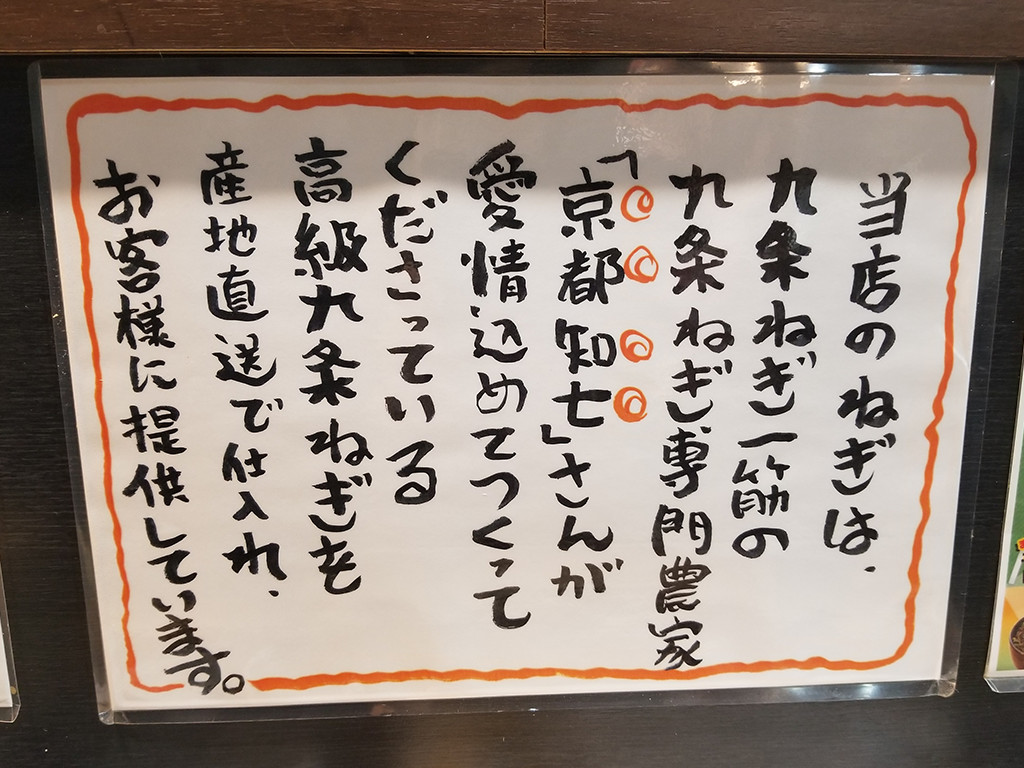 当店のねぎは、
九条ねぎ一筋の
九条ねぎ専門農家
「京都知七」さんが
愛情込めてつくって
くださっている
高級九条ねぎを
産地直送で仕入れ、
お客様に提供しています。